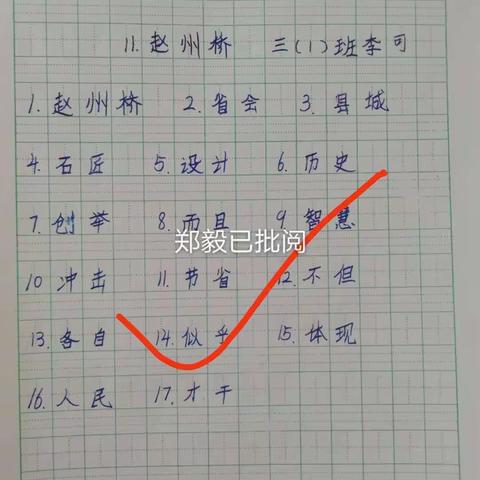 11.赵州桥 三(1)班李可
1.赵州桥 2.省会 3.县城
4.石匠 5.设计 6.历史
7.创举 8.而且 9.智慧
郑毅已批阅
10 冲击 11.节省 12.不但
13.各自 14.似乎 15.体现
16.人民 17.才干